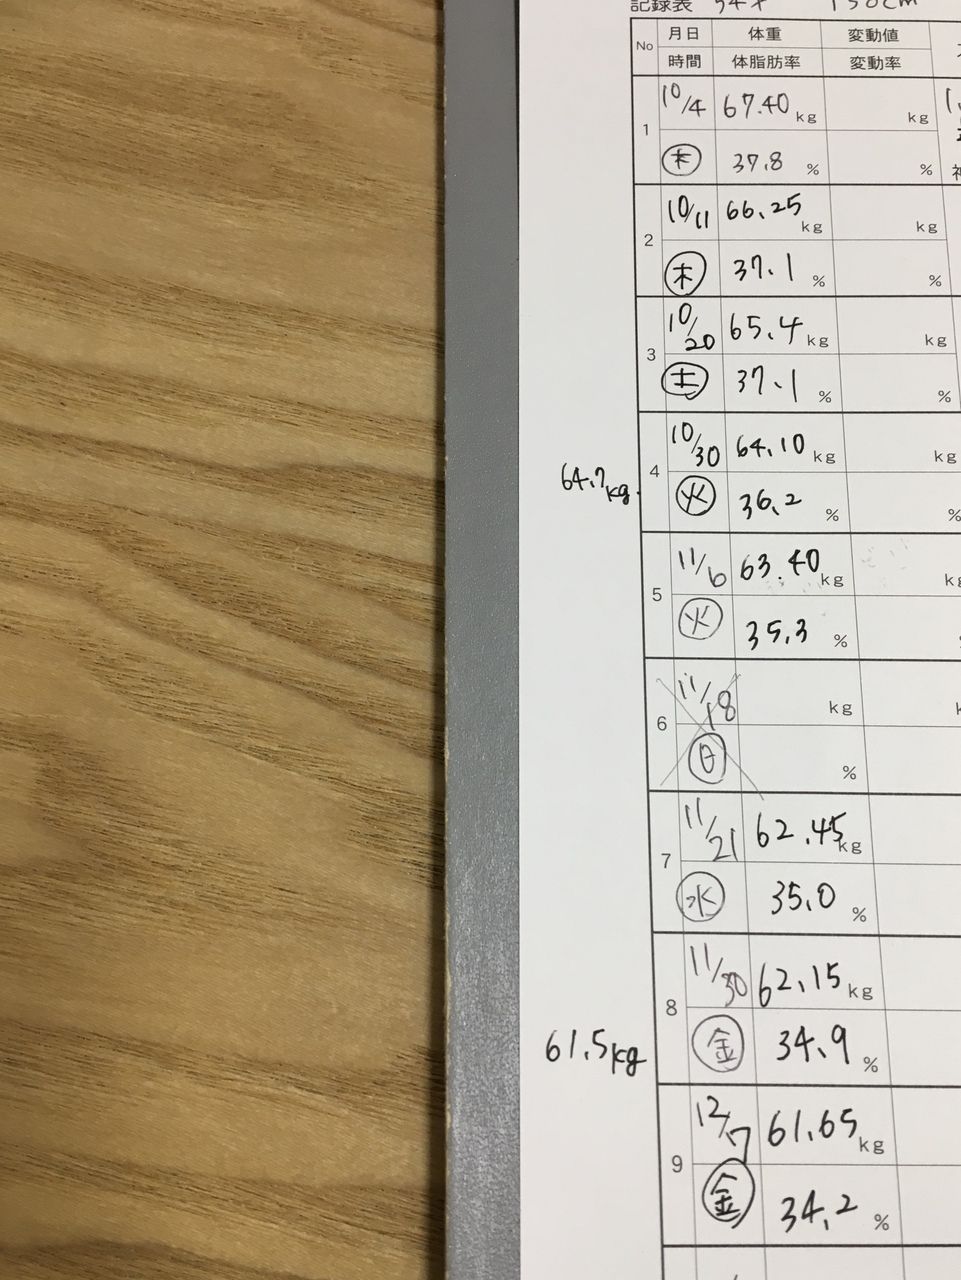 記録表
No 月日 体重 変動値
時間 体脂肪率 変動率
1 10/4 67.40 kg kg
木 37.8 % %
2 10/11 66.25 kg kg
木 37.1 % %
3 10/20 65.4 kg kg
土 37.1 % %
4 10/30 64.10 kg kg
64.7kg
火 36.2 % %
5 11/6 63.40 kg kg
火 35.3 %
6 11/18 kg
日 %
7 11/21 62.45 kg
水 35.0 %
8 11/30 62.15 kg
61.5kg
金 34.9 %
9 12/7 61.65 kg
金 34.2 %